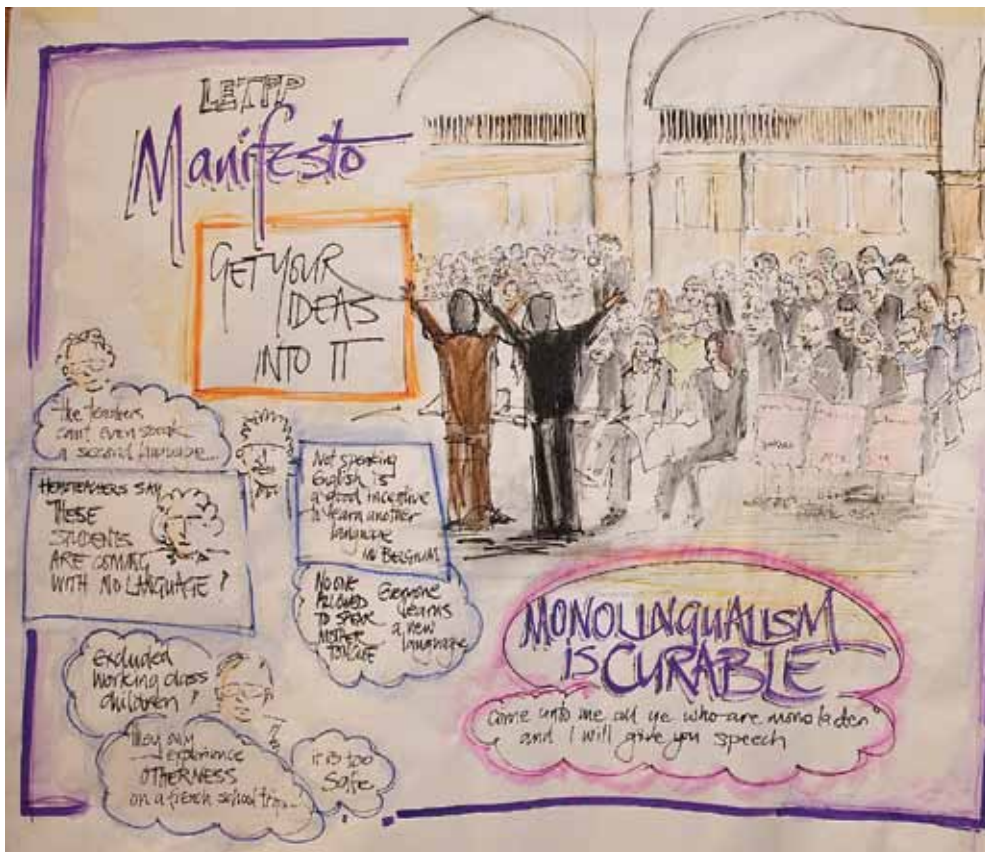 LETPP
Manifesto
GET YOUR
IDEAS
INTO IT
the teachers
can't even speak
a second language...
HEADTEACHERS SAY
THESE
STUDENTS
ARE COMING
WITH NO LANGUAGE?
Not speaking
English is
a good incentive
to learn another
language
IN BELGIUM
NO ONE
ALLOWED
TO SPEAK
MOTHER
TONGUE
Everyone
learns
a new
language
excluded
working class
children?
they only
experience
OTHERNESS
on a french school trip...
it is too
safe
MONOLINGUALISM
IS CURABLE
come unto me all ye who are mono laden
and I will give you speech